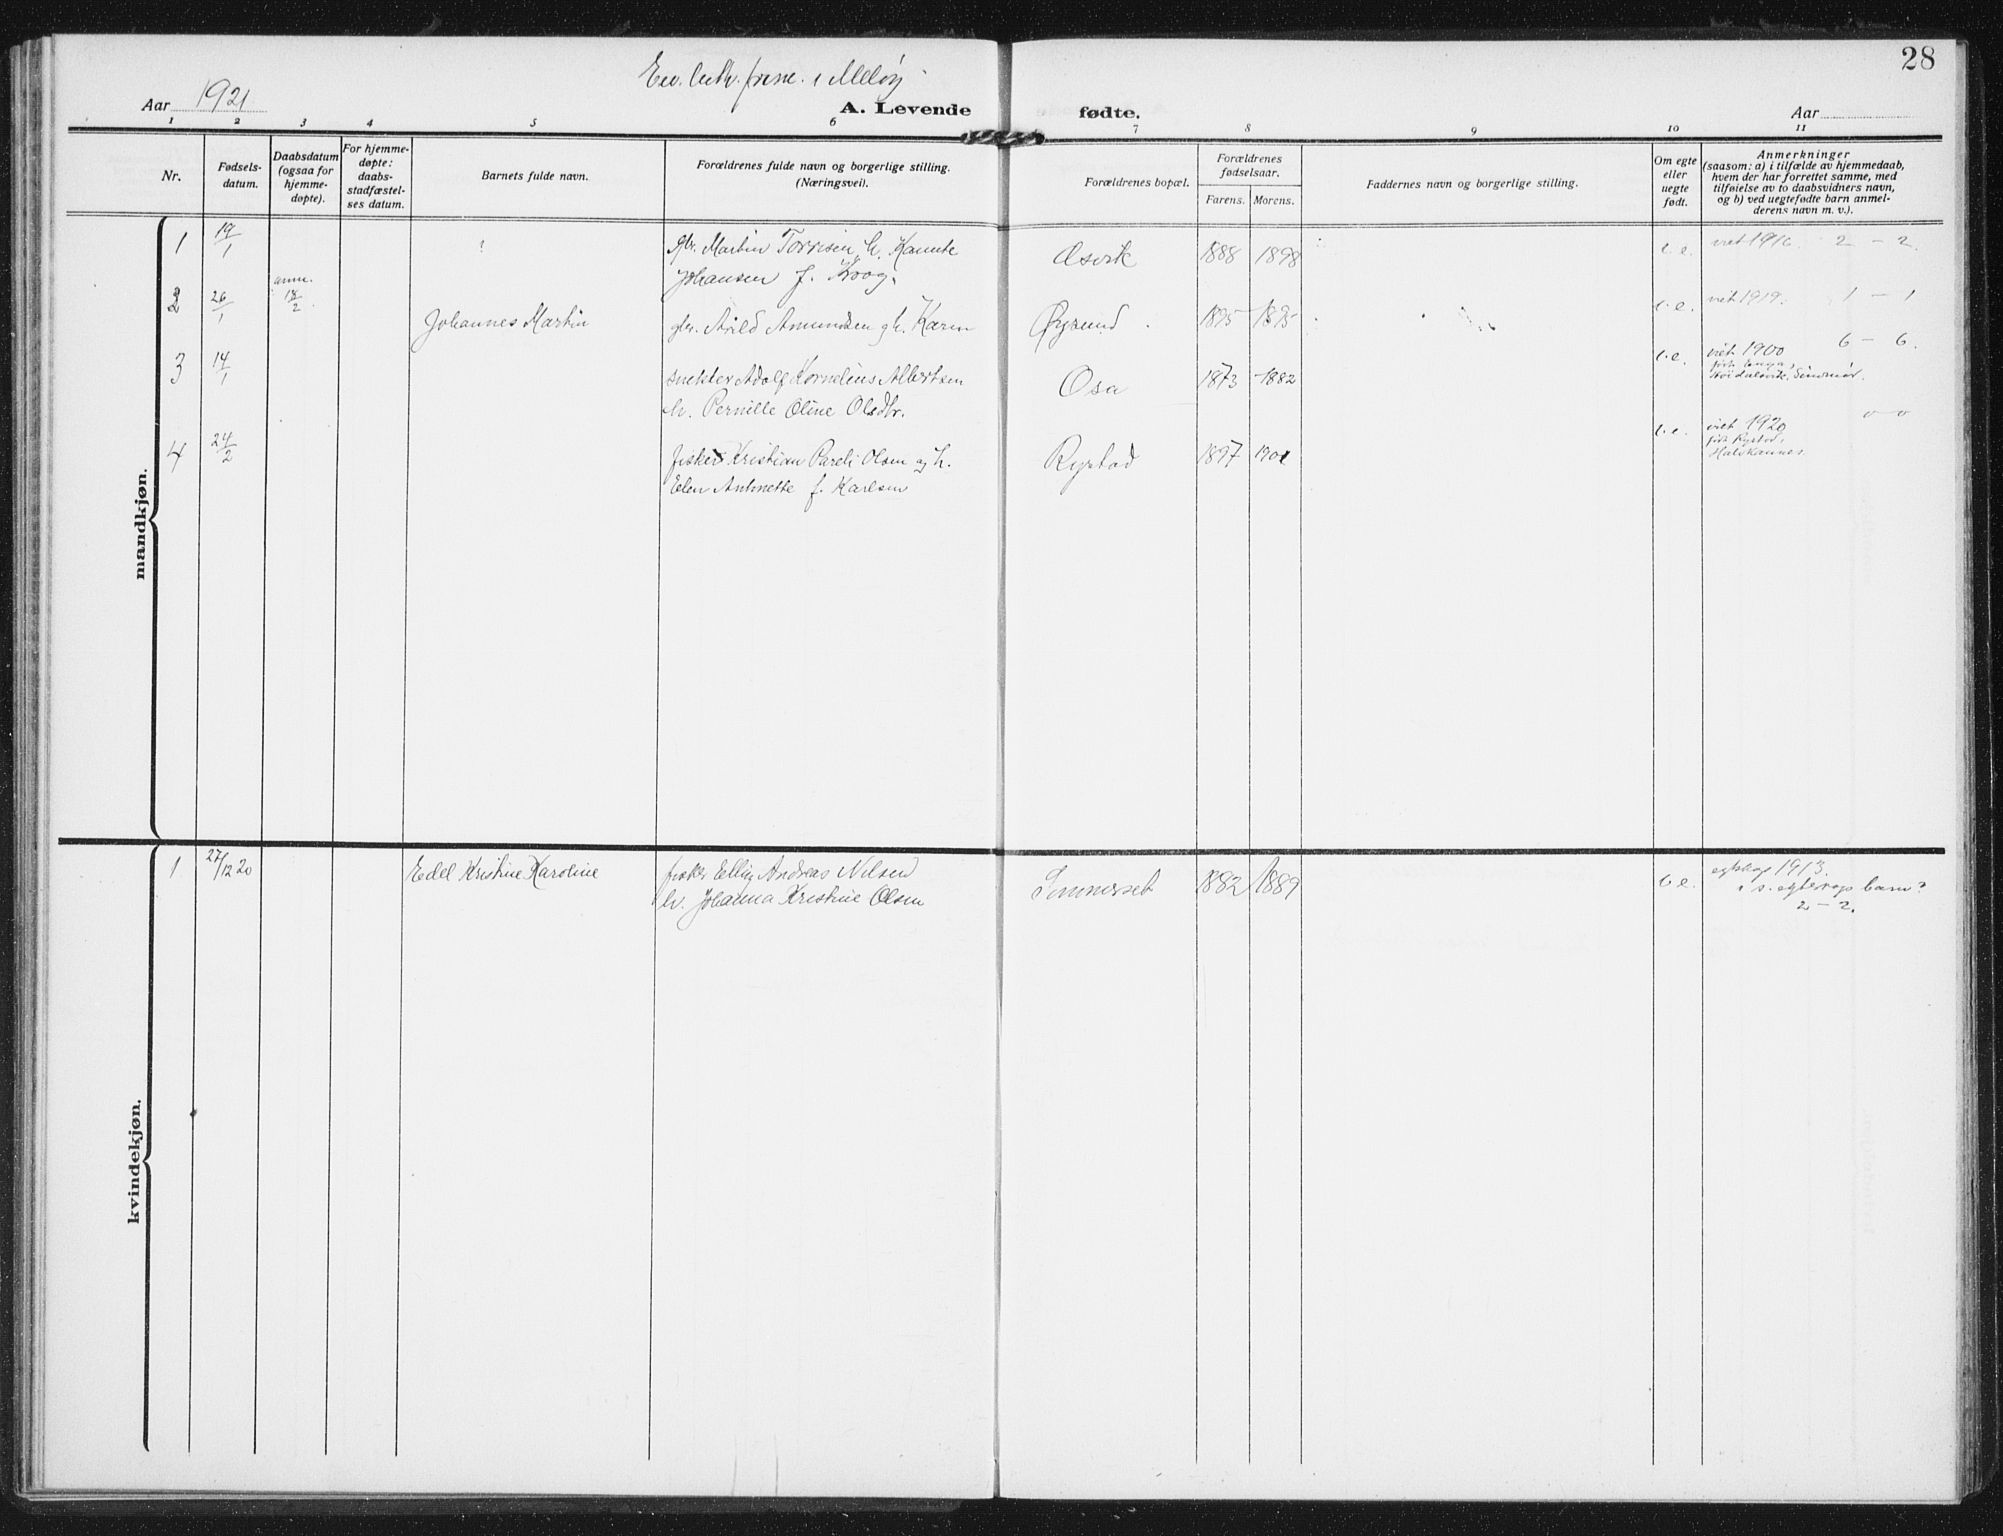 28
Ev. luth. i Meløy
Aar 1921
A. Levende fødte.
Aar
1 2 3 4 5 6 7 8 9 10 11
Nr.
Fødsels-
datum.
Daabsdatum
(ogsaa for
hjemme-
døpte).
For hjemme-
døpte:
daabs-
stadfæstel-
ses datum.
Barnets fulde navn.
Forældrenes fulde navn og borgerlige stilling.
(Næringsvei).
Forældrenes bopæl.
Forældrenes
fødselsaar.
Farens. Morens.
Faddernes navn og borgerlige stilling.
Om egte
eller
uegte
født.
Anmerkninger
(saasom: a) i tilfælde av hjemmedaab,
hvem der har forrettet samme, med
tilføielse av to daabsvidners navn,
og b) ved uegtefødte barn anmel-
derens navn m. v.).
mandkjøn.
1 19/1 ? gbr. Martin Torrisen h. Kamte Æsvik 1888 1898 e. e. viet 1916. 2 – 2.
Johansen f. Krog.
2 26/1 anm. 18/2. Johannes Martin gbr. Arild Amundsen og h. Karen Øysund. 1895 1895 e. e. viet 1919. 1 – 1
3 14/1 snekker Adolf Kornelius Albertsen Osa 1873 1882 e. e. viet 1900 6 – 6.
h. Pernille Oline Olsdtr.
4 24/2 fisker Kristian Pareli Olsen og h. Rystad 1897 1901 e. e. viet 1920 0 – 0
født Rystad,
Elen Antonette f. Karlsen
kvindekjøn.
1 27/12 20 Edel Kristine Karoline fisker Elling Andreas Nilsen Sommerset 1882 1889 e. e. egtskap 1913.
h. Johanna Kristine Olsen i s. egteskap barn?
2 – 2.